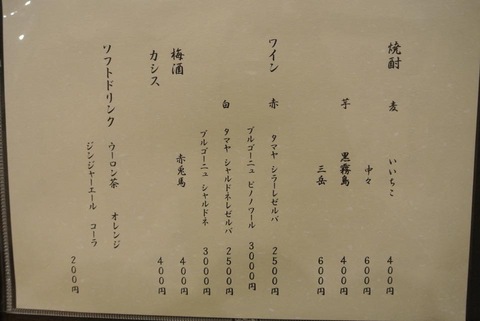 焼酎 麦 いいちこ 400円
中々 600円
芋 黒霧島 400円
三岳 600円
ワイン 赤 タマヤ シラーレゼルバ 2500円
ブルゴーニュ ピノノワール 3000円
白 タマヤ シャルドネレゼルバ 2500円
ブルゴーニュ シャルドネ 3000円
梅酒 赤兎馬 400円
カシス 400円
ソフトドリンク ウーロン茶 オレンジ
ジンジャーエール コーラ 200円